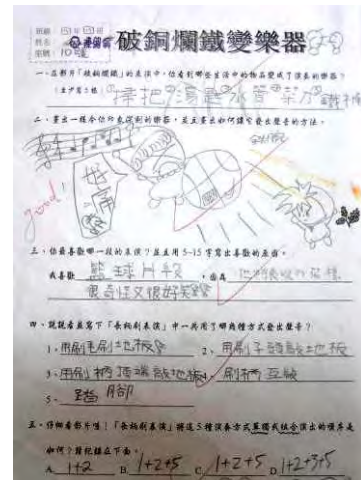 班級：5年
姓名：
座號：10號
破銅爛鐵變樂器
一、在影片「破銅爛鐵」的表演中，你看到哪些生活中的物品變成了演奏的樂器？
（至少寫5樣）掃把 湯匙 水管 菜刀 鐵桶
二、畫出一樣令你印象深刻的樂器，並且畫出如何讓它發出聲音的方法。
good!
三、你最喜歡哪一段的表演？並且用5-15字寫出喜歡的原因。
我喜歡 籃球片段，因為
很奇怪又很好笑
四、說說看並寫下「長柄刷表演」中一共用了哪幾種方式發出聲音？
1、用刷毛刷地板 2、用刷子頭敲地板
3、用刷柄頂端敲地板 4、刷柄互敲
5、踏腳
五、仔細看影片唷！「長柄刷表演」將這5種演奏方式單獨或組合演出的順序是
如何？請紀錄在下面。
A. 1+2 B. 1+2+5 C. 1+2+5 D. 1+2+3+5